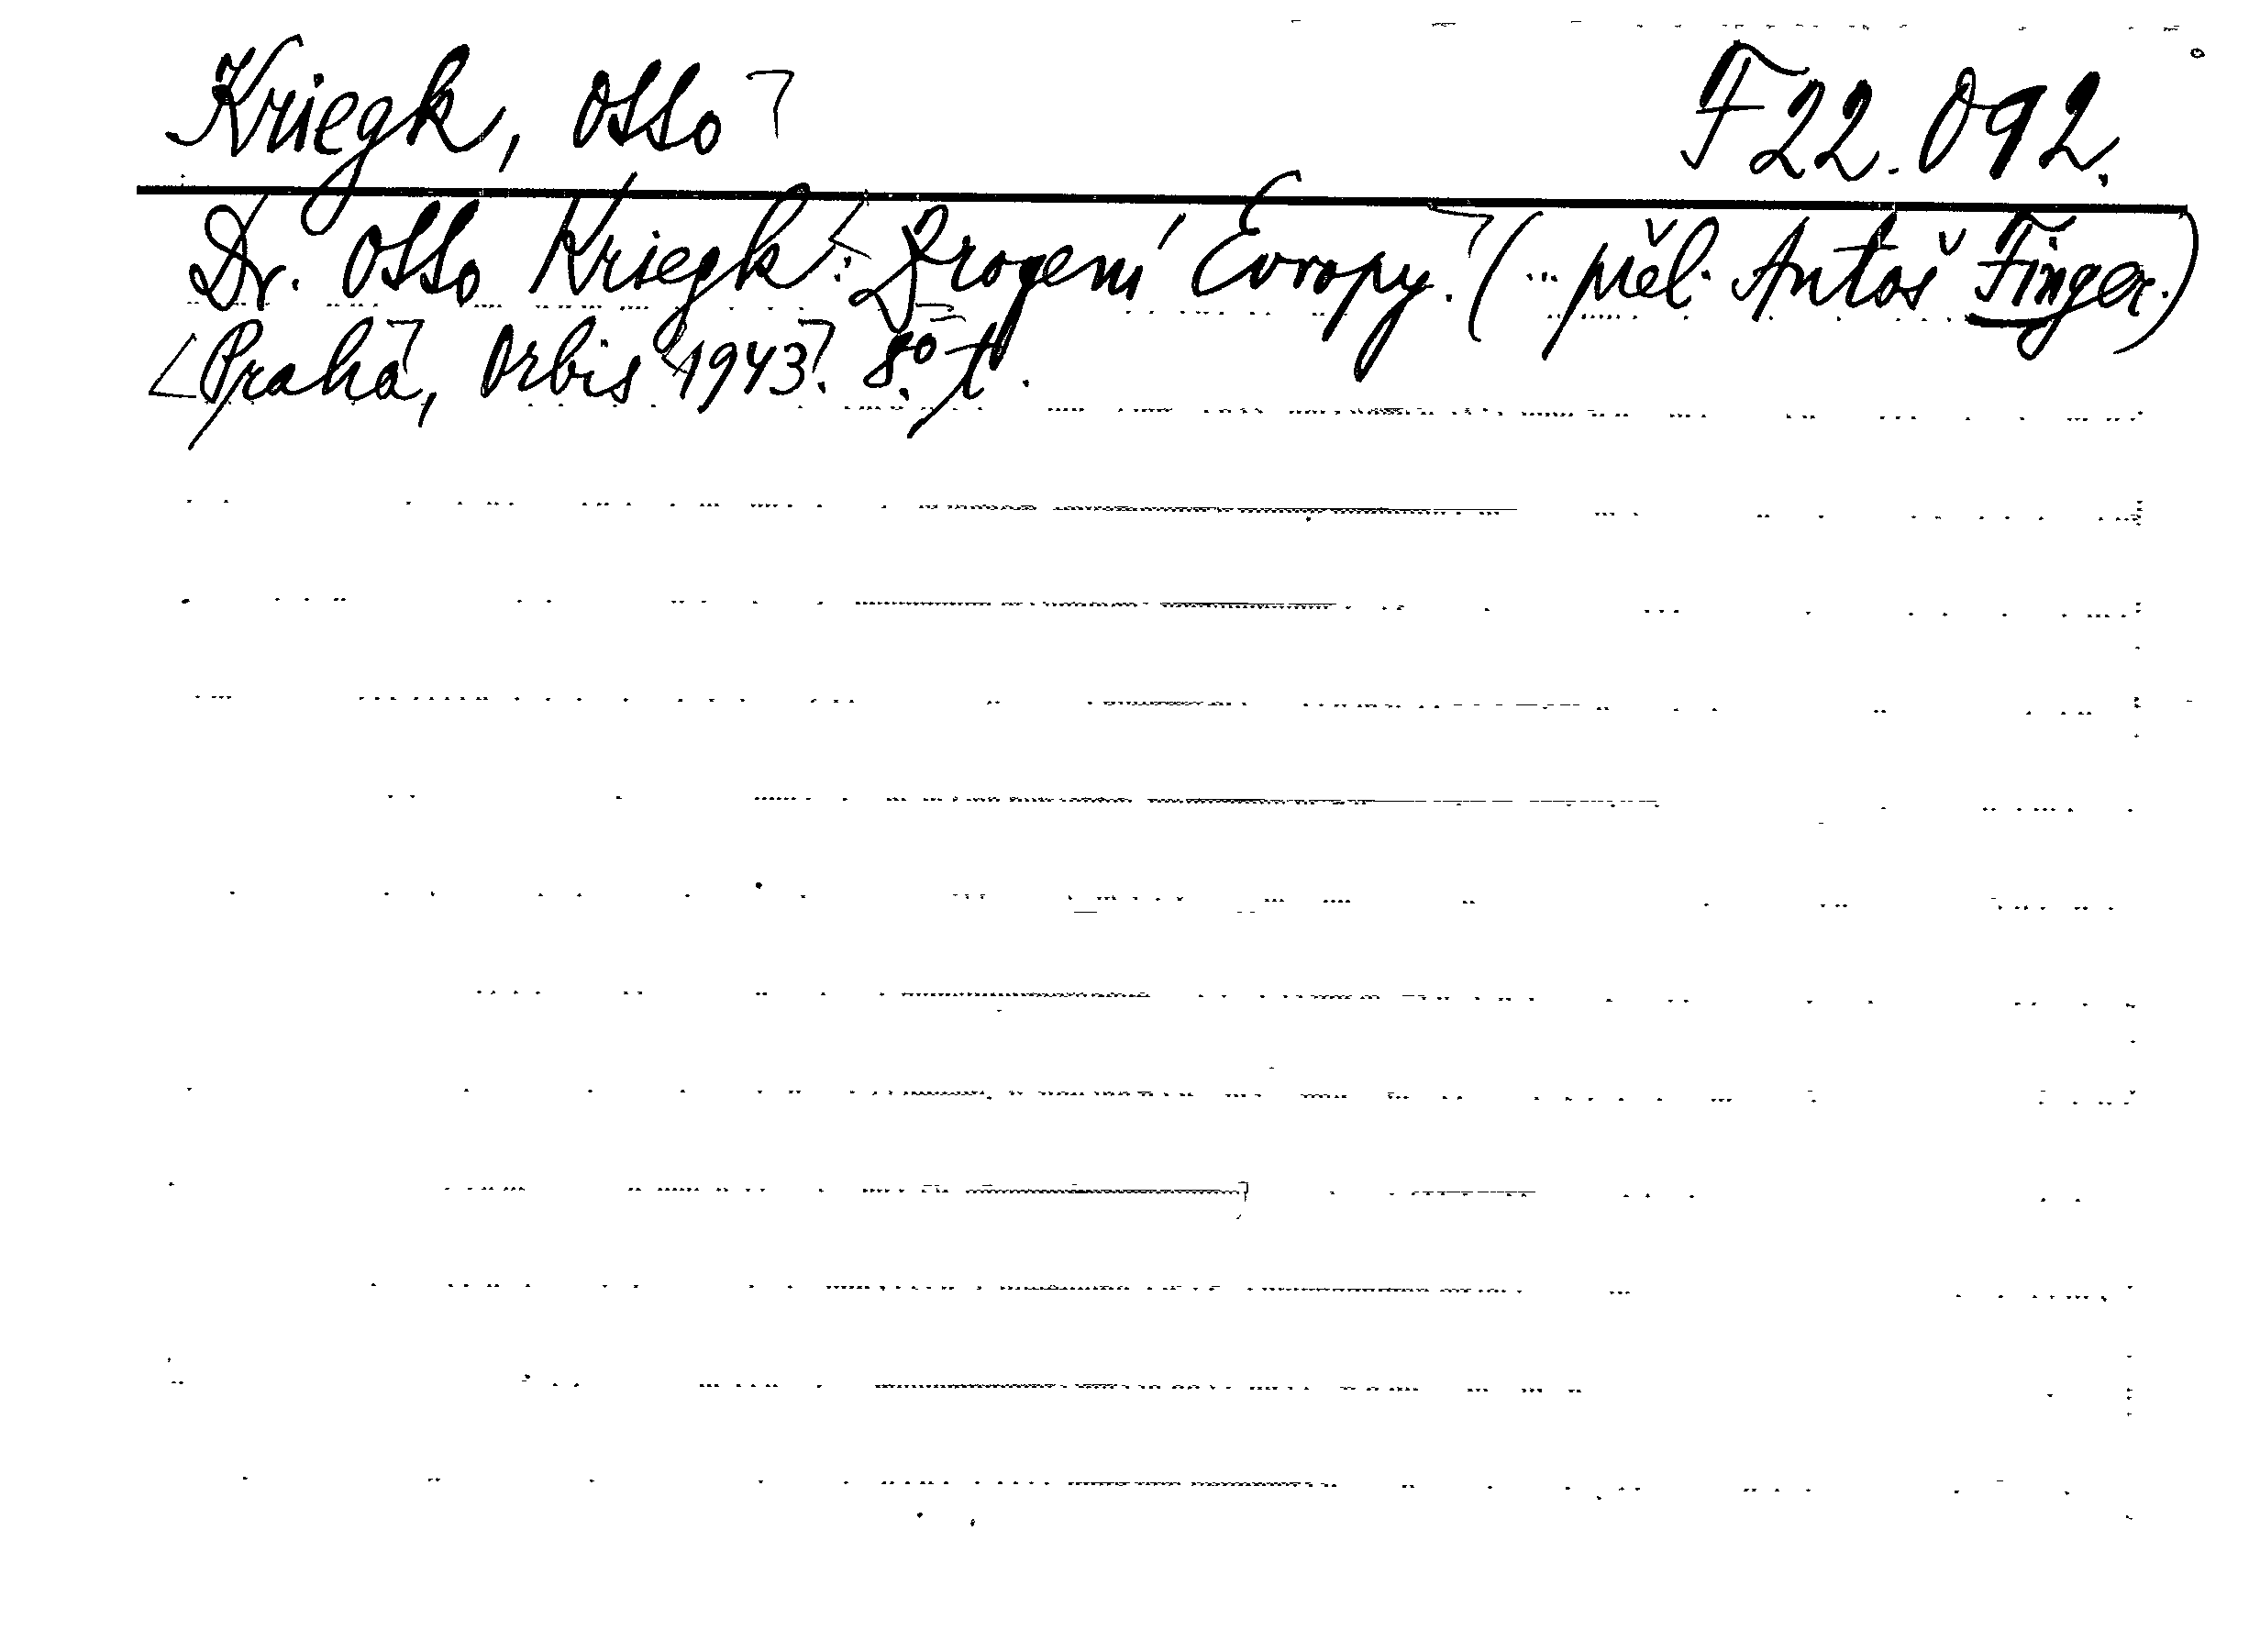 Kriegk, Otto F 22.092.
Dr. Otto Kriegk: Zrození Evropy. (... přel. Antoš Finger.)
Praha, Orbis 1943. 8° t.